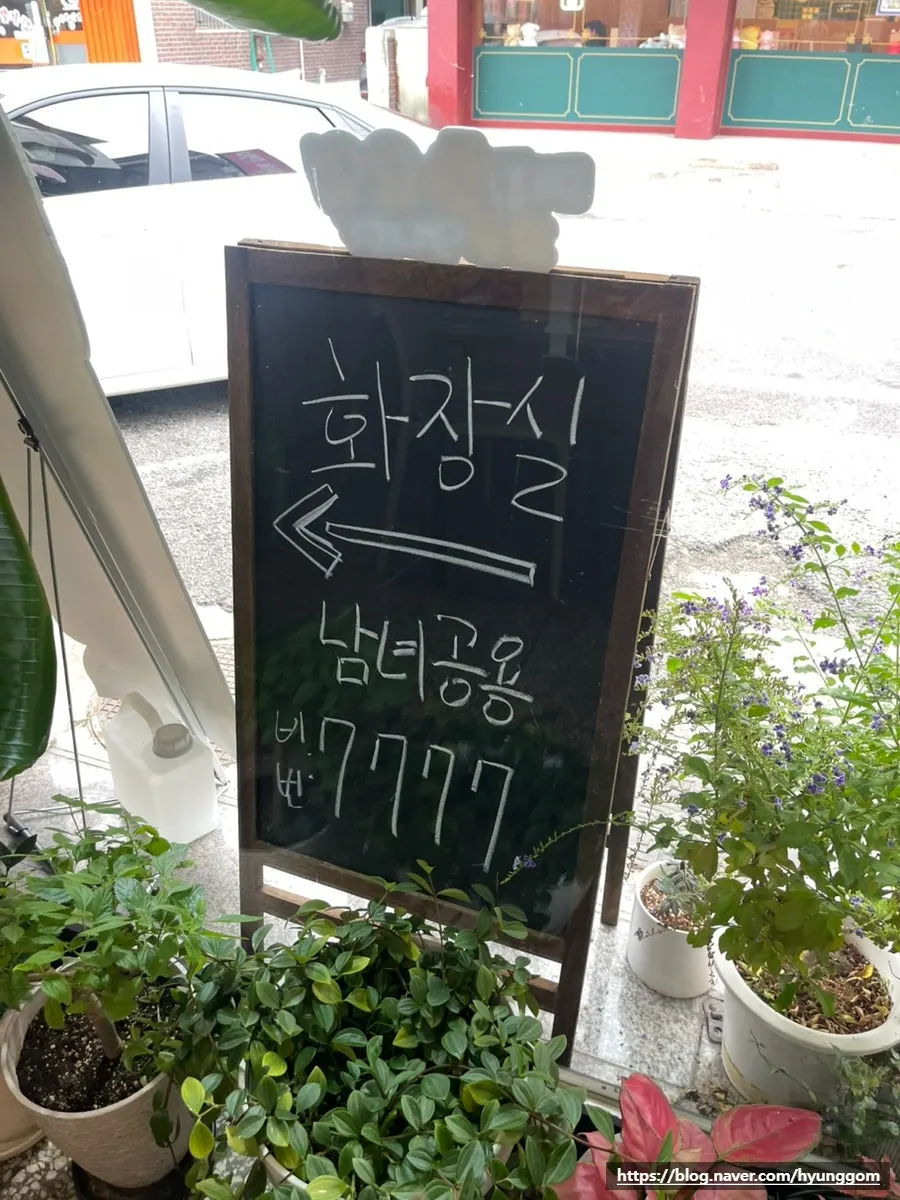 화장실
남녀공용
비번 7777
https://blog.naver.com/hyunggom